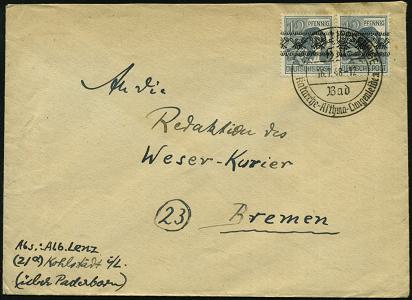 12 PFENNIG 12 PFENNIG
DEUTSCHE POST DEUTSCHE POST
16.7.48-12
Katarrhe-Asthma-Lungenleiden
Bad
An die
Redaktion des
Weser-Kurier
(23) Bremen
Abs.: Alb. Lenz
(21a) Kohlstädt i/L.
(über Paderborn)